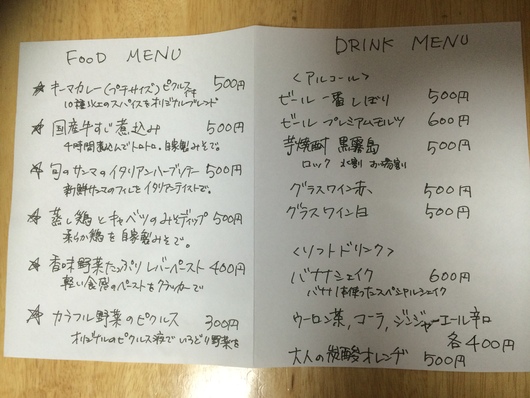 FOOD MENU
☆ キーマカレー(プチサイズ)ピクルス付き 500円
10種以上のスパイスをオリジナルブレンド
☆ 国産牛すじ煮込み 500円
4時間煮込んでトロトロ。自家製みそで。
☆ 旬のサンマのイタリアンハーブソテー 500円
新鮮サンマのフィレをイタリアンテイストで。
☆ 蒸し鶏とキャベツのみそディップ 500円
柔らか鶏を自家製みそで。
☆ 香味野菜たっぷりレバーペースト 400円
軽い食感のペーストをクラッカーで
☆ カラフル野菜のピクルス 300円
オリジナルのピクルス液でいろどり野菜を
DRINK MENU
<アルコール>
ビール 一番しぼり 500円
ビール プレミアムモルツ 600円
芋焼酎 黒霧島 500円
ロック 水割 お湯割
グラスワイン赤 500円
グラスワイン白 500円
<ソフトドリンク>
バナナシェイク 600円
バナナ1本使ったスペシャルシェイク
ウーロン茶,コーラ,ジンジャーエール辛口
各400円
大人の炭酸オレンヂ 500円